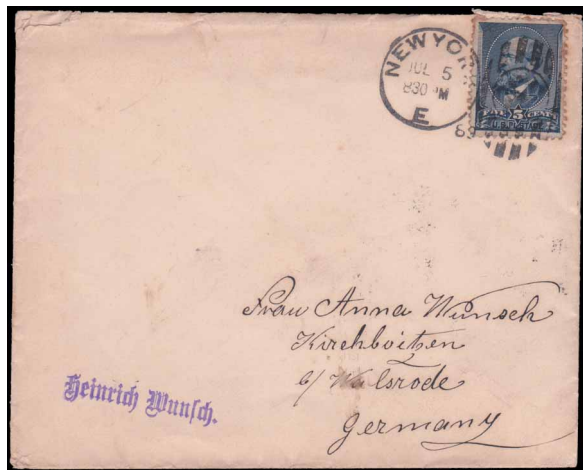 NEW YORK
JUL 5
830 PM
E
89
5
U.S. POSTAGE
Frau Anna Wunsch
Kirchboitzen
b/ Walsrode
Germany
Heinrich Wunsch.